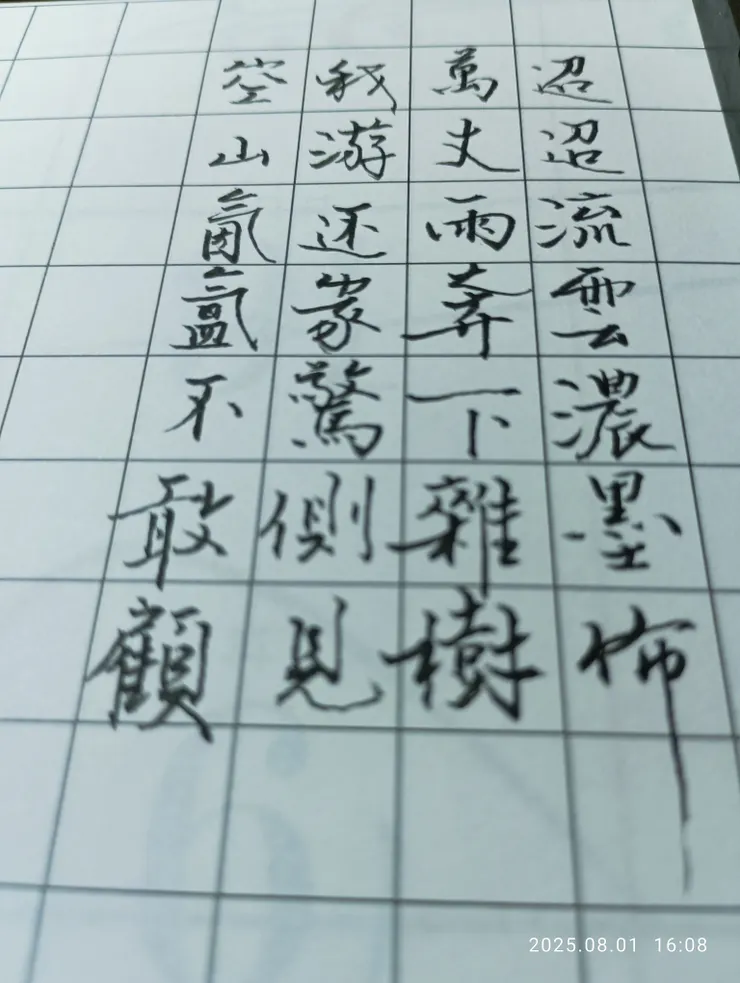 迢迢流雲濃墨怖
萬丈雨奔一下雜樹
我游还家驚側見
空山氤氳不敢顧
2025.08.01 16:08